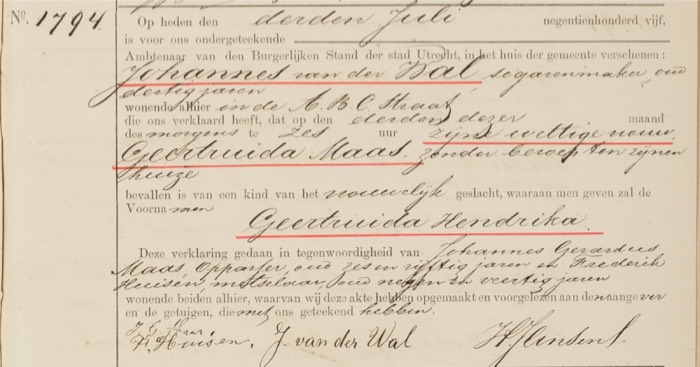 No. 1794.
Op heden den derden Juli negentienhonderd vijf,
is voor ons ondergeteekende
Ambtenaar van den Burgerlijken Stand der stad Utrecht, in het huis der gemeente verschenen:
Johannes van der Wal, sigarenmaker, oud
dertig jaren
wonende alhier in de A.B.C. Straat
die ons verklaard heeft, dat op den derden dezer maand
des morgens te zes uur zijne wettige vrouw
Geertruida Maas, zonder beroep ten zijnen
huize
bevallen is van een kind van het vrouwelijk geslacht, waaraan men geven zal de
Voornamen
Geertruida Hendrika.
Deze verklaring gedaan in tegenwoordigheid van Johannes Gerardus
Maas, Opparser, oud zes en vijftig jaren en Frederik
Huisen, metselaar, oud negen en veertig jaren
wonende beiden alhier, waarvan wij deze akte hebben opgemaakt en voorgelezen aan den aangever
en de getuigen, die met ons geteekend hebben.
J. G. Maas
F. Huisen. J. van der Wal